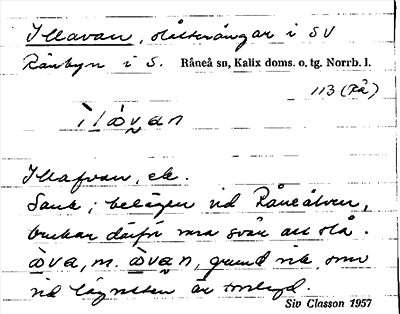 Illavan, slåtterängar i SV
Rånbyn i S. Råneå sn, Kalix doms. o. tg. Norrb. l.
113 (Rå)
ìlåvan
Illafvan, ek.
Sank; belägen vid Råneälven,
brukar därför vara svår att slå.
åva, m. åvan, grund vik, som
vid lågvatten är
Siv Classon 1957